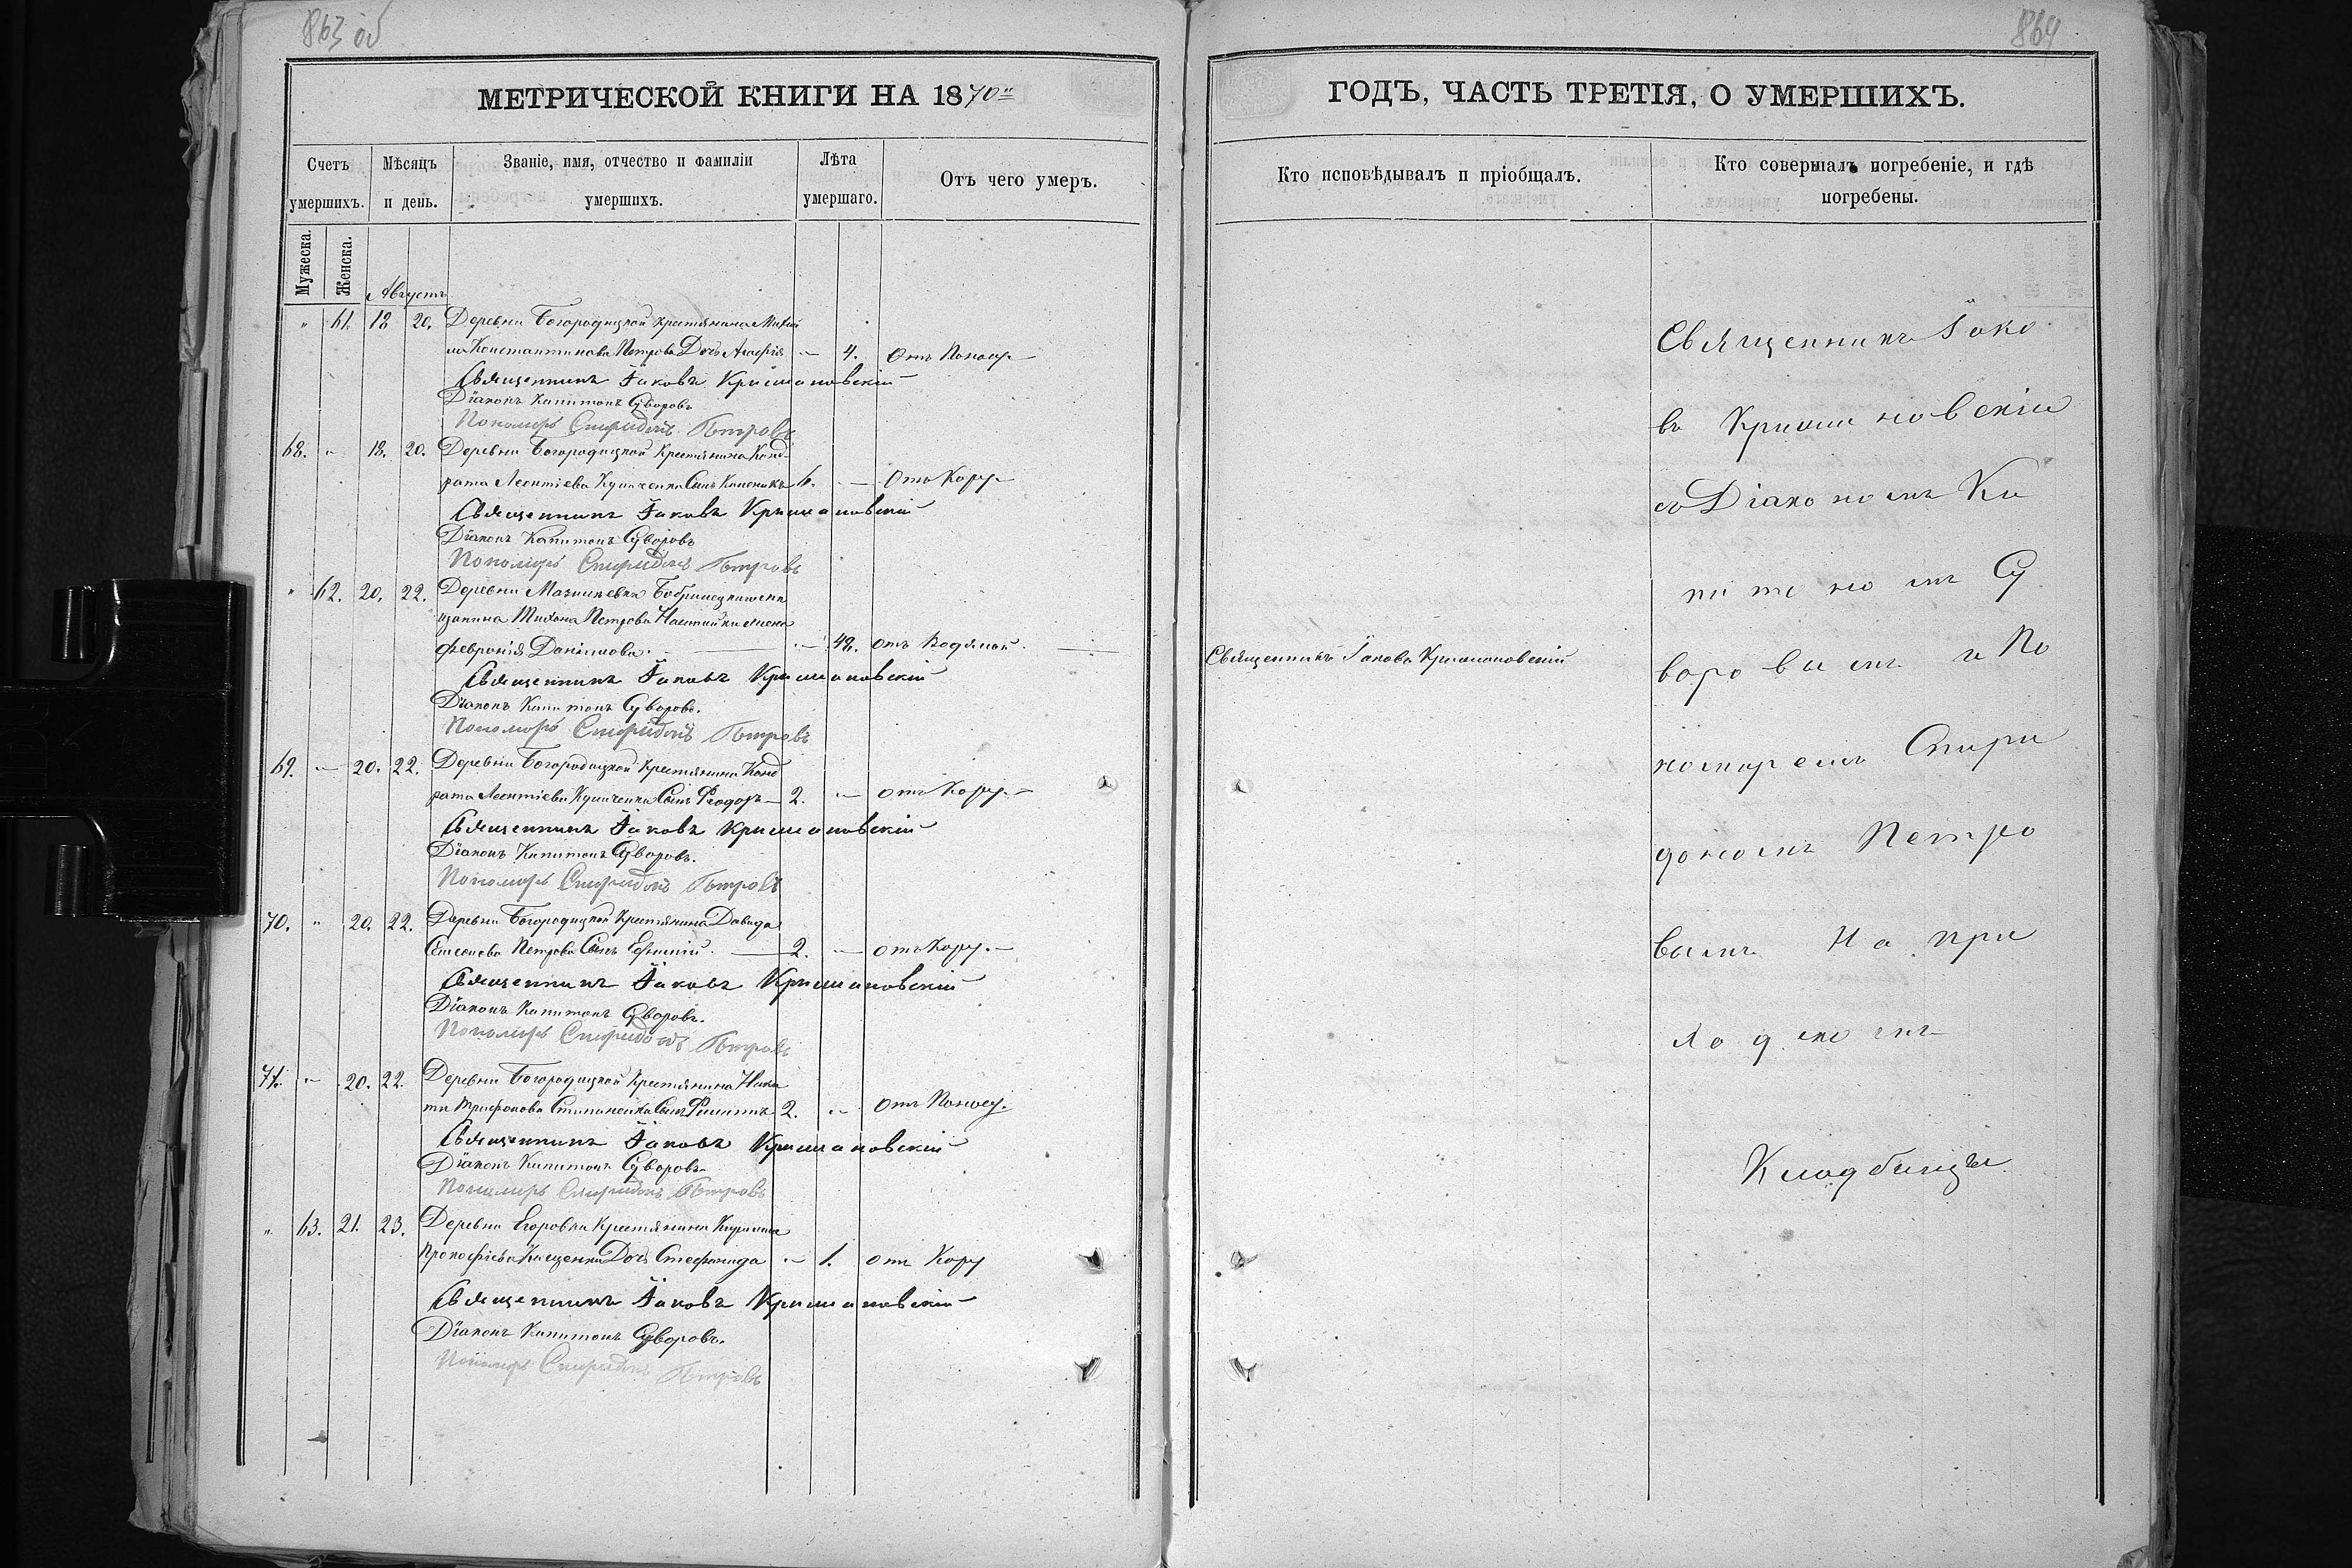 863 об
МЕТРИЧЕСКОЙ КНИГИ НА 1870й
Счетъ умершихъ.
Мѣсяцъ и день.
Званіе, имя, отчество и фамиліи умершихъ.
Лѣта умершаго.
Отъ чего умеръ.
Мужеска.
Женска.
Августъ
" 61. 18 20. Деревни Богородицкой крестьянина Михаи
ла Константинова Петрова Дочь Агафія — 4. Отъ Поноса
Священникъ Іаковъ Кришановскій
Діаконъ Капитонъ Суворовъ
Пономарь Спиридонъ Петровъ
68. " 18. 20. Деревни Богородицкой Крестьянина Конд
рата Леонтіева Сынъ 6. — Отъ Кору
Священникъ Іаковъ Кришановскій
Діаконъ Капитонъ Суворовъ
Пономарь Спиридонъ Петровъ
" 62. 20. 22. Деревни
Тихона Петрова жена
Февронія Данилова — 42. отъ Водяной
Священникъ Іаковъ Кришановскій
Діаконъ Капитонъ Суворовъ.
Пономарь Спиридонъ Петровъ
69. — 20. 22. Деревни Богородицкой Крестьянина Конд
рата Леонтіева Сынъ Ѳеодоръ — 2. — отъ Кору
Священникъ Іаковъ Кришановскій
Діаконъ Капитонъ Суворовъ.
Пономарь Спиридонъ Петровъ
70. " 20. 22. Деревни Богородицкой Крестьянина Давида
Петрова Сынъ Евфимій — 2. — отъ Кору.
Священникъ Іаковъ Кришановскій
Діаконъ Капитонъ Суворовъ.
Пономарь Спиридонъ Петровъ
71. " 20. 22. Деревни Богородицкой Крестьянина Ники
ты Трифонова Сынъ 2. — Отъ Поноса.
Священникъ Іаковъ Кришановскій
Діаконъ Капитонъ Суворовъ
Пономарь Спиридонъ Петровъ
" 63. 21. 23. Деревни Егоровки Крестьянина Кирилла
Прокофіева Дочь Стефанида — 1. отъ Кору
Священникъ Іаковъ Кришановскій
Діаконъ Капитонъ Суворовъ.
Пономарь Спиридонъ Петровъ
864
ГОДЪ, ЧАСТЬ ТРЕТІЯ, О УМЕРШИХЪ.
Кто исповѣдывалъ и пріобщалъ.
Кто совершалъ погребеніе, и гдѣ погребены.
Священникъ Іаковъ Кришановскій
Священникъ Іако
въ Кришановскій
съ Діакономъ Ка
питономъ Су
воровымъ и По
номаремъ Спири
дономъ Петро
вымъ На при
ходскомъ
Кладбищѣ